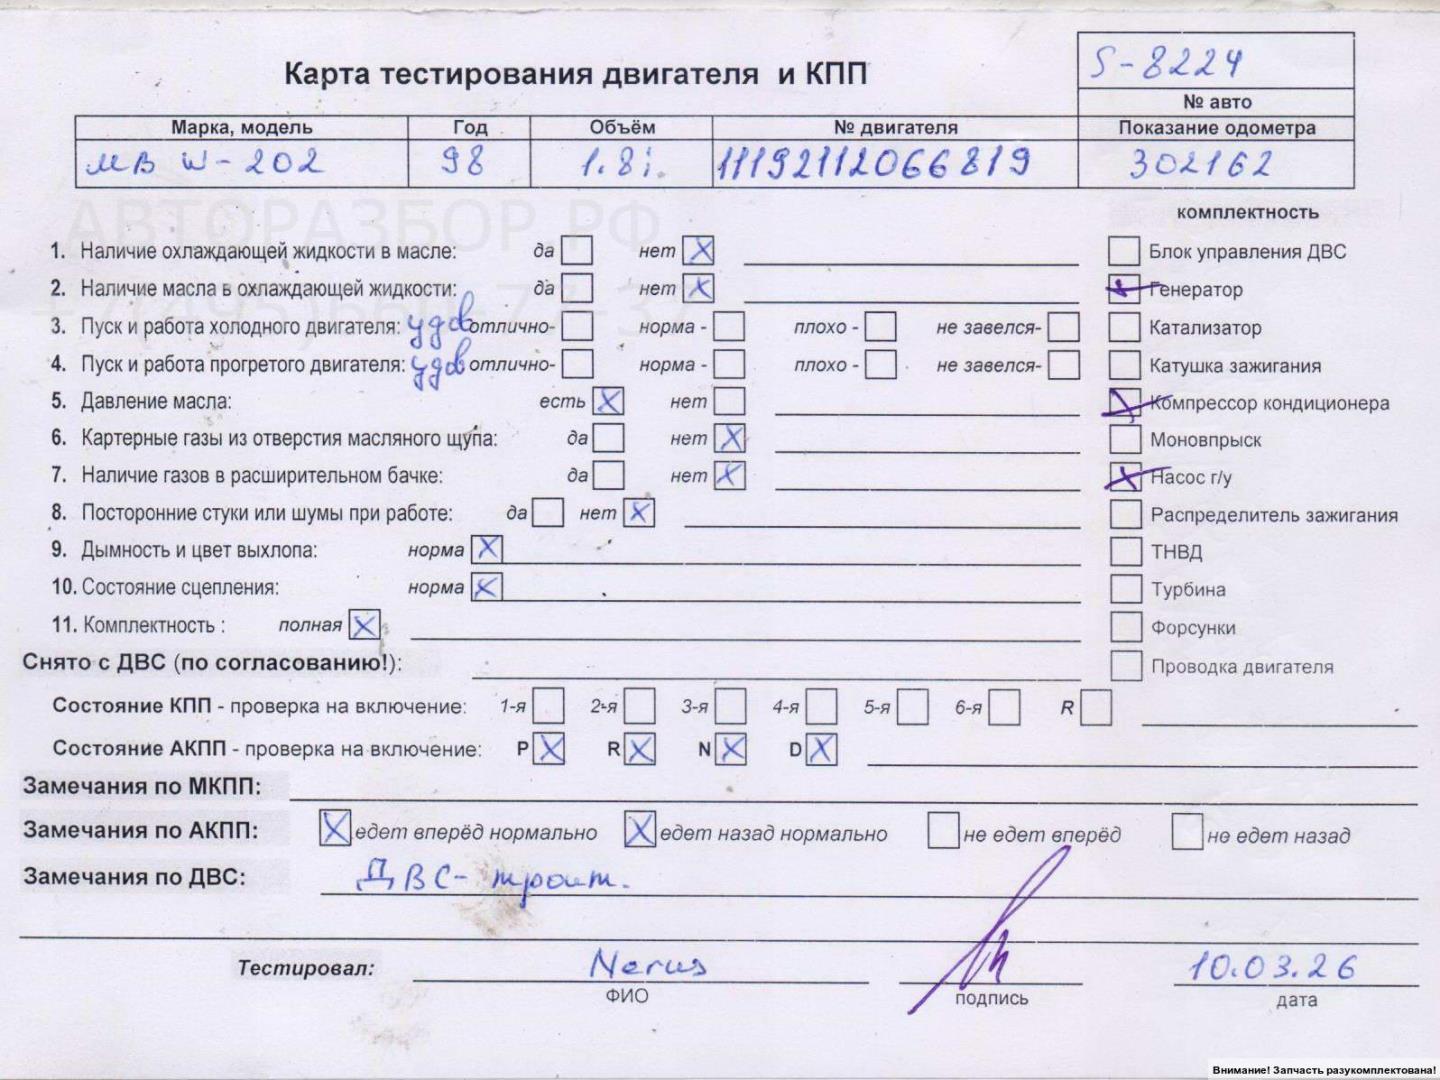 S-8224
Карта тестирования двигателя и КПП
№ авто
Марка, модель Год Объём № двигателя Показание одометра
МВ W-202 98 1.8i. 11192112066819 302162
АВТОРАЗБОР.РФ
комплектность
1. Наличие охлаждающей жидкости в масле: да нет X Блок управления ДВС
2. Наличие масла в охлаждающей жидкости: да нет X Генератор
3. Пуск и работа холодного двигателя: удов отлично- норма - плохо - не завелся- Катализатор
4. Пуск и работа прогретого двигателя: удов отлично- норма - плохо - не завелся- Катушка зажигания
5. Давление масла: есть X нет Компрессор кондиционера
6. Картерные газы из отверстия масляного щупа: да нет X Моновпрыск
7. Наличие газов в расширительном бачке: да нет X Насос г/у
8. Посторонние стуки или шумы при работе: да нет X Распределитель зажигания
9. Дымность и цвет выхлопа: норма X ТНВД
10. Состояние сцепления: норма X Турбина
11. Комплектность : полная X Форсунки
Снято с ДВС (по согласованию!): Проводка двигателя
Состояние КПП - проверка на включение: 1-я 2-я 3-я 4-я 5-я 6-я R
Состояние АКПП - проверка на включение: P X R X N X D X
Замечания по МКПП:
Замечания по АКПП: X едет вперёд нормально X едет назад нормально не едет вперёд не едет назад
Замечания по ДВС: ДВС- троит.
Тестировал: Nerus 10.03.26
ФИО подпись дата
Внимание! Запчасть разукомплектована!